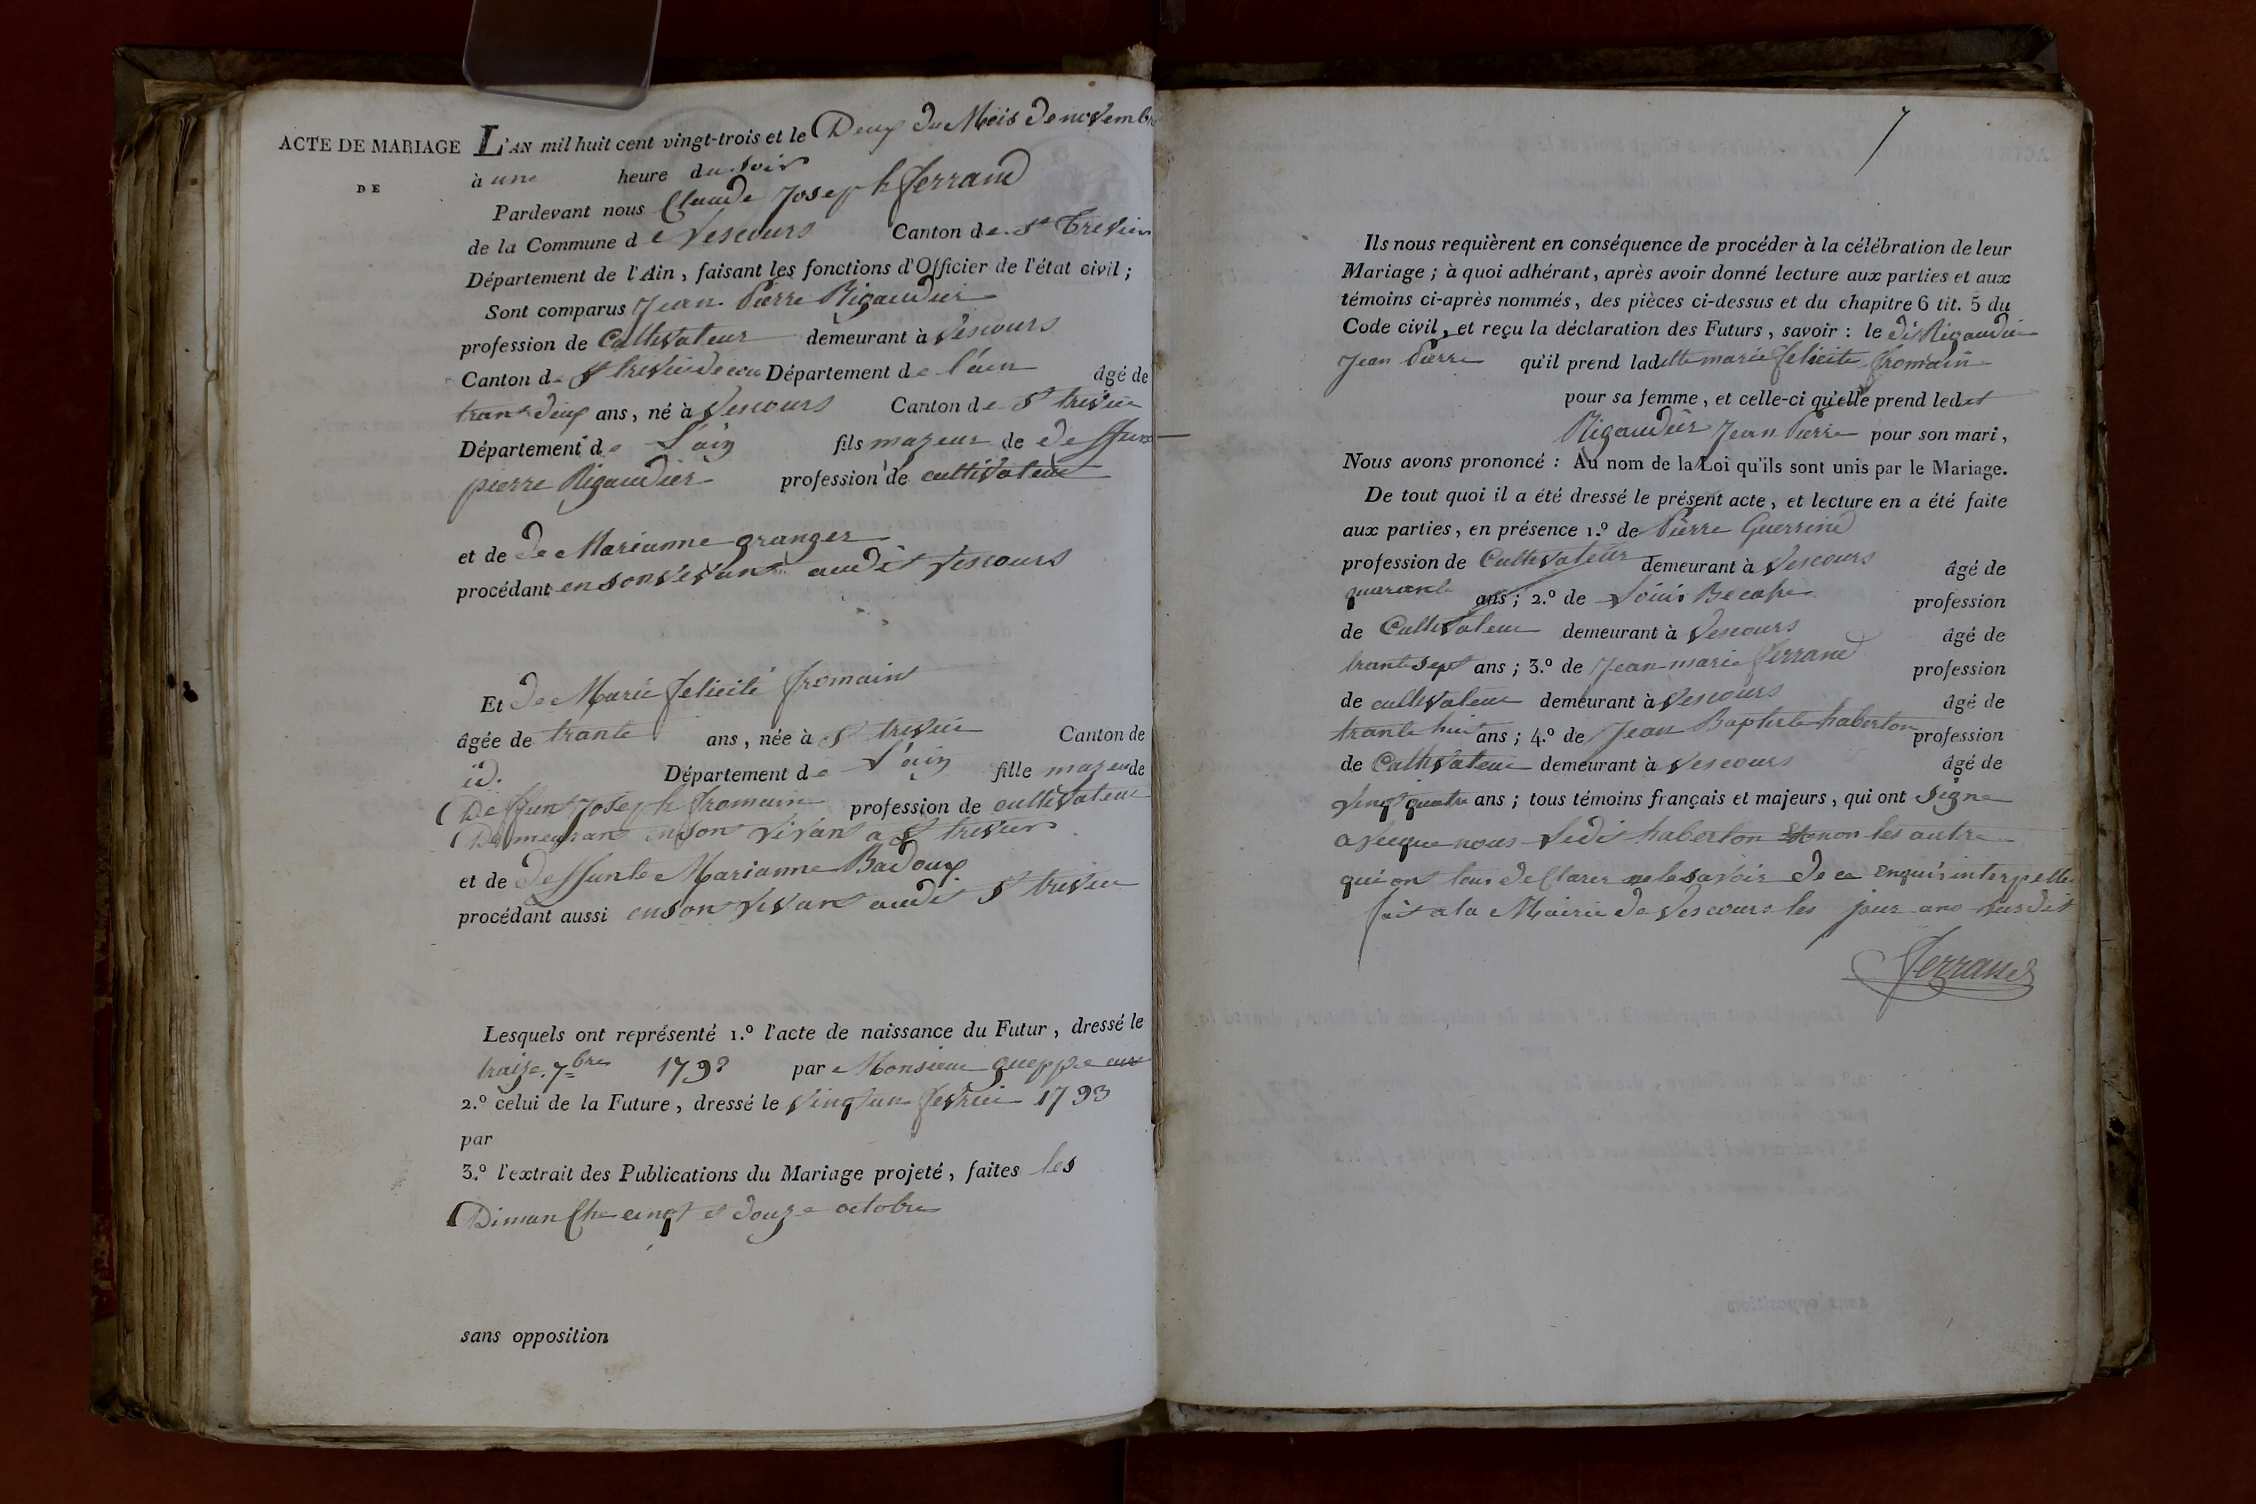 ACTE DE MARIAGE
DE
L'AN mil huit cent vingt-trois et le Deux du Mois de novembre
à une heure du soir
Pardevant nous Claude Joseph ferrand
de la Commune de Vescours Canton de St Trevier
Département de l'Ain, faisant les fonctions d'Officier de l'état civil;
Sont comparus Jean Pierre Rigaudier
profession de Cultivateur demeurant à Vescours
Canton de St trevier de Département de l'ain âgé de
trante deux ans, né à Vescours Canton de St trevier
Département de L'ain fils majeur de deffunt
pierre Rigaudier profession de cultivateur
et de de Marianne granger
procédant en son vivant audit Vescours
Et de Marie felicité fromain
âgée de trante ans, née à St trevier Canton de
id. Département de L'ain fille majeur de
Deffunt Joseph fromain profession de cultivateur
Demeurant en son vivant a St trevier
et de deffunte Marianne Badoux
procédant aussi en son vivant audit St trevier
Lesquels ont représenté 1.º l'acte de naissance du Futur, dressé le
traize 7bre par Monsieur
2.º celui de la Future, dressé le vingt un fevrier 1793
par
3.º l'extrait des Publications du Mariage projeté, faites les
Dimanche cinq et douze octobre
sans opposition
7
Ils nous requièrent en conséquence de procéder à la célébration de leur
Mariage; à quoi adhérant, après avoir donné lecture aux parties et aux
témoins ci-après nommés, des pièces ci-dessus et du chapitre 6 tit. 5 du
Code civil, et reçu la déclaration des Futurs, savoir: le dit Rigaudier
Jean Pierre qu'il prend ladette marie felicite fromain
pour sa femme, et celle-ci qu'elle prend ledit
Rigaudier Jean Pierre pour son mari,
Nous avons prononcé: Au nom de la Loi qu'ils sont unis par le Mariage.
De tout quoi il a été dressé le présent acte, et lecture en a été faite
aux parties, en présence 1.º de Pierre
profession de Cultivateur demeurant à Vescours âgé de
quarante ans; 2.º de Louis profession
de Cultivateur demeurant à Vescours âgé de
trante sept ans; 3.º de Jean-marie ferrand profession
de cultivateur demeurant à Vescours âgé de
trante huit ans; 4.º de Jean Baptiste haberton profession
de Cultivateur demeurant à Vescours âgé de
vingt quatre ans; tous témoins français et majeurs, qui ont signe
avecque nous ledit haberton non les autre
qui ont tous declarer ne le savoir de ce enquis interpelle
fait a la Mairie de Vescours les jour ans susdit
Ferrand